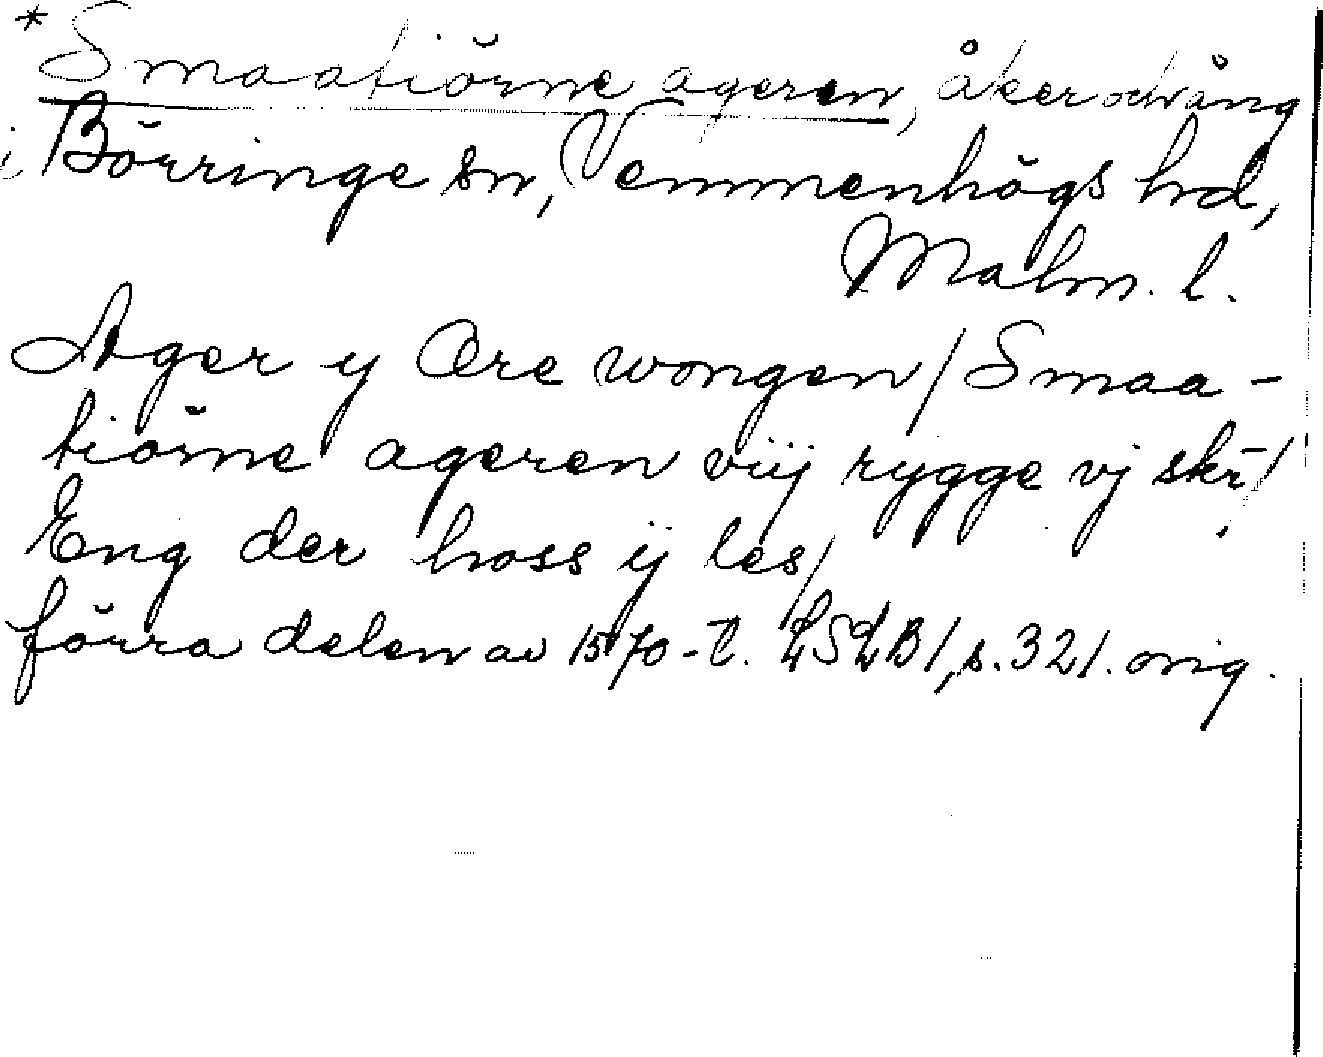 * Smaatiörne ageren, åker o. äng
i Börringe sn, Vemmenhögs hd,
Malm. l.
Ager y Øre wongen / Smaa-
tiörne ageren viij rygge vj skr /
Eng der hoss ij les /
förra delen av 1570-t. LSLB1, s. 321. orig.